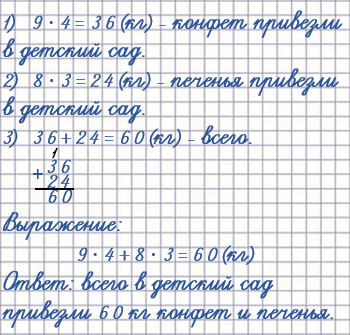 1) 9 · 4 = 36 (кг) – конфет привезли
в детский сад.
2) 8 · 3 = 24 (кг) – печенья привезли
в детский сад.
3) 36 + 24 = 60 (кг) – всего.
1
+ 36
24
60
Выражение:
9 · 4 + 8 · 3 = 60 (кг)
Ответ: всего в детский сад
привезли 60 кг конфет и печенья.